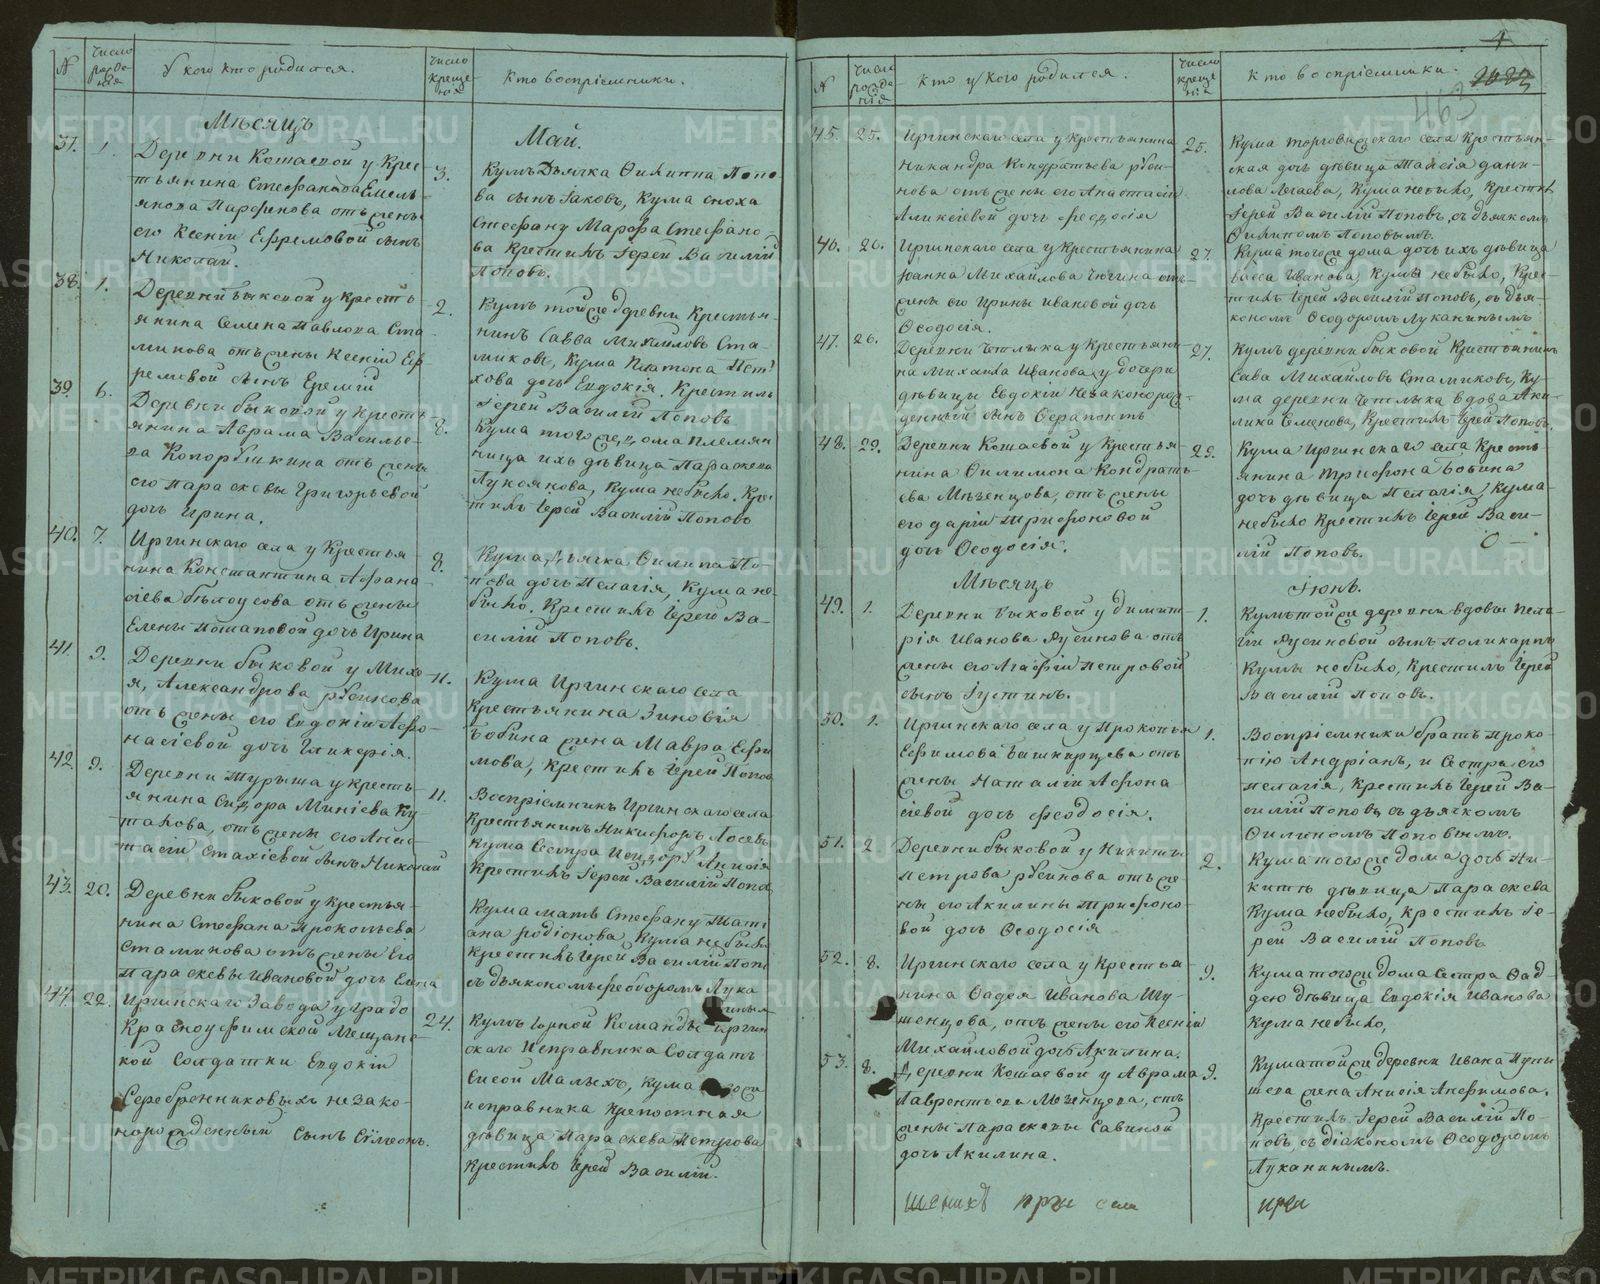 N
Число рожде- нія
У кого кто родился.
Число креще- нія
Кто воспріемники.
Мѣсяцъ
Май.
37. 1.
Деревни Кошаевой у крес-
тьянина Стефанова Емель-
янова Парфенова отъ жены
его Ксеніи Ефремовой сынъ
Николай.
3.
Кумъ Дьячка Филиппа Попо-
ва сынъ Іаковъ, кума сноха
Стефану Марфа Стефано-
ва крестилъ Іерей Василій
Поповъ.
38. 1.
Деревни Быковой у кресть-
янина Семена Павлова Ста-
микова отъ жены Ксеніи Еф-
ремовой сынъ Еремій
2.
Кумъ той же деревни крестья-
нинъ Савва Михайловъ Ста-
миковъ, кума Платона
дочь Евдокія. Крестилъ
Іерей Василій Поповъ
39. 6.
Деревни Быковой у кресть-
янина Аврама Василье-
ва Копорушкина отъ жены
его Параскевы Григорьевой
дочь Ирина.
8.
Кума того же дома племян-
ница ихъ дѣвица Параскева
Лукоянова, кума небыло. Кре-
тилъ Іерей Василій Поповъ
40. 7.
Иргинскаго села у крестья-
нина Константина Афана-
сіева Бѣлоусова отъ жены
Елены Потаповой дочь Ирина
8.
Кума дьячка Филипа По-
пова дочь Пелагія, кума не-
было. Крестилъ Іерей Ва-
силій Поповъ.
41. 9.
Деревни Быковой у Миха-
я, Александрова Русинова
отъ жены его Евдокіи Афо-
насіевой дочь Гликерія.
11.
Кума Иргинскаго села
крестьянина Зиновія
Бобина жена Мавра Ефи-
мова, крестилъ Іерей Попов
42. 9.
Деревни Шурыша у кресть-
янина Сидора Минѣева Ку-
такова, отъ жены его Анас-
тасіи Стахіевой сынъ Николай
11.
Воспріемникъ Иргинскаго села
крестьянинъ Никифоръ Лосевъ
кума сестра Исидору Анисія
Крестилъ Іерей Василій Попов
43. 20.
Деревни Быковой у крестья-
нина Стефана Прокопьева
Стамикова отъ жены его
Параскевы Ивановой дочь Елена
Кума мать Стефану Тать-
ана Родіонова, кума небыло
Крестилъ Іерей Василій Поп
съ дьякономъ Феодоромъ Лука
нинымъ
44. 22.
Иргинскаго Завода у Градо
Красноуфимской Мещанс-
кой солдатки Евдокіи
Серебренниковыхъ незако-
норожденный сынъ Симеонъ.
24.
Кумъ Горной Команды Иргин
скаго Исправника Солдатъ
Елисей Малыхъ, кума
исправника крепостная
дѣвица Параскева Петрова
крестилъ Іерей Василій.
4
463
N
Число рожде нія
Кто у кого родился.
Число креще нія
Кто воспріемники.
45. 25.
Иргинскаго села у крестьянина
Никандра Кондратьева Руси-
нова отъ жены его Анастасіи
Алексіевой дочь Феодосія
25.
Кума торговижскаго села крестьян-
ская дочь дѣвица Таисія Дани-
лова Легаева, кума небыло, крестилъ
Іерей Василій Поповъ, съ дьячкомъ
Филипомъ Поповымъ.
46. 26.
Иргинскаго села у крестьянина
Іоанна Михайлова Чюгина отъ
жены его Ирины Ивановой дочь
Феодосія.
27.
Кума того же дома дочь ихъ дѣвица
Васса Иванова, кума небыло, Крес-
тилъ Іерей Василій Поповъ, съ дья-
кономъ Феодоромъ Луканинымъ
47. 26.
Деревни Четлыка у крестьяни-
на Михаила Иванова, у дочери
дѣвицы Евдокіи незаконорож-
денный сынъ Ферапонтъ
27.
Кумъ деревни Быковой крестьянинъ
Сава Михайловъ Стамиковъ, ку-
ма деревни Четлыка вдова Аку-
лина Семенова, Крестилъ Іерей Поповъ.
48. 29.
Деревни Кошаевой у крестья-
нина Филимона Кондрать-
ева Мезенцова, отъ жены
его Даріи Трифоновой
дочь Феодосія.
29.
Кума Иргинскаго села кресть-
янина Трифона Бобина
дочь дѣвица Пелагія, кума
небыло крестилъ Іерей Васи-
лій Поповъ.
Мѣсяцъ
Іюнь.
49. 1.
Деревни Быковой у Димит-
рія Иванова Русинова отъ
жены его Агафіи Петровой
сынъ Іустинъ.
1.
Кумъ той же деревни вдовы Пела-
гіи Русиновой сынъ Поликарпъ
Кумы небыло, Крестилъ Іерей
Василій Поповъ.
50. 1.
Иргинскаго села у Прокопья
Ефимова Башкирцева отъ
жены Наталіи Афона
сіевой дочь Феодосія.
1.
Воспріемники братъ Проко-
пію Андріанъ, и сестра его
Пелагія, Крестилъ Іерей Ва-
силій Поповъ съ дьячкомъ
Филипомъ Поповымъ.
51. 2
Деревни Быковой у Никиты
Петрова Русинова отъ же-
ны его Акилины Трифоно-
вой дочь Феодосія
2.
Кума того же дома дочь Ни-
китѣ дѣвица Параскева
Кума небыло, крестилъ Іе-
рей Василій Поповъ
52. 8.
Иргинскаго села у крестья-
нина Фадея Иванова Шу-
шенцова, отъ жены его Ксеніи
Михайловой дочь Акилина.
9.
Кума того же дома сестра Фад-
дею дѣвица Евдокія Иванова
Кума небыло,
53. 8.
Деревни Кошаевой у Аврама
Лаврентьева Мезенцова, отъ
жены Параскевы Савиной
дочь Акилина.
9.
Кума той же деревни Ивана Пупы
шева жена Анисія Анфимова.
Крестилъ Іерей Василій По-
повъ, съ діакономъ Феодоромъ
Луканинымъ.
при села
при
METRIKI.GASO-URAL.RU